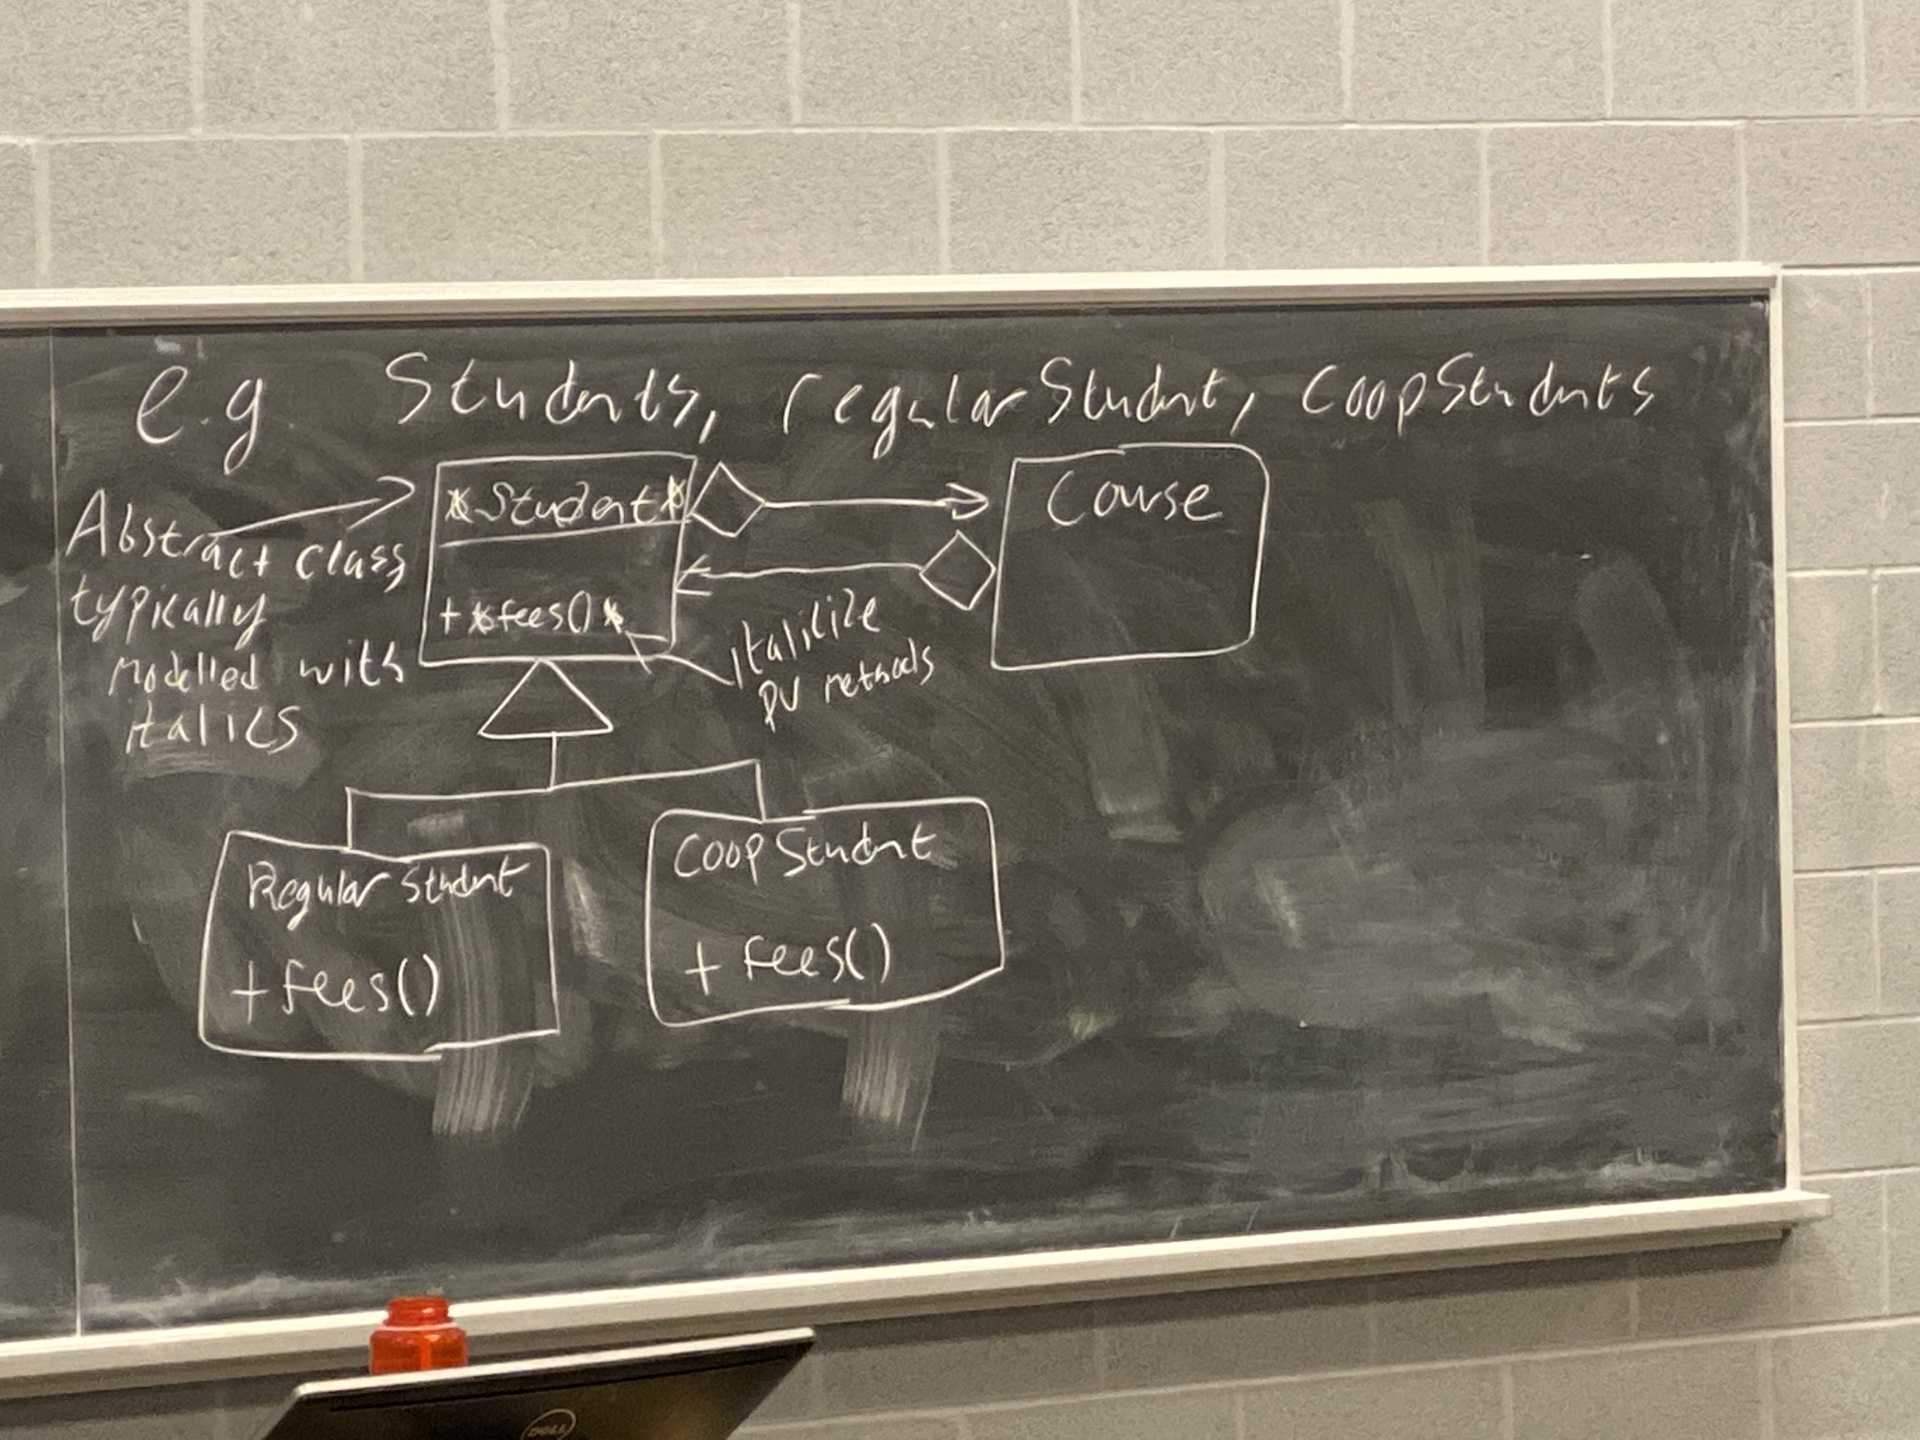 e.g. Students, regularStudent, CoopStudents
Abstract class
typically
modelled with
italics
*Student*
+ *fees()*
Course
italicize
PV methods
Regular Student
+ fees()
Coop Student
+ fees()
DELL